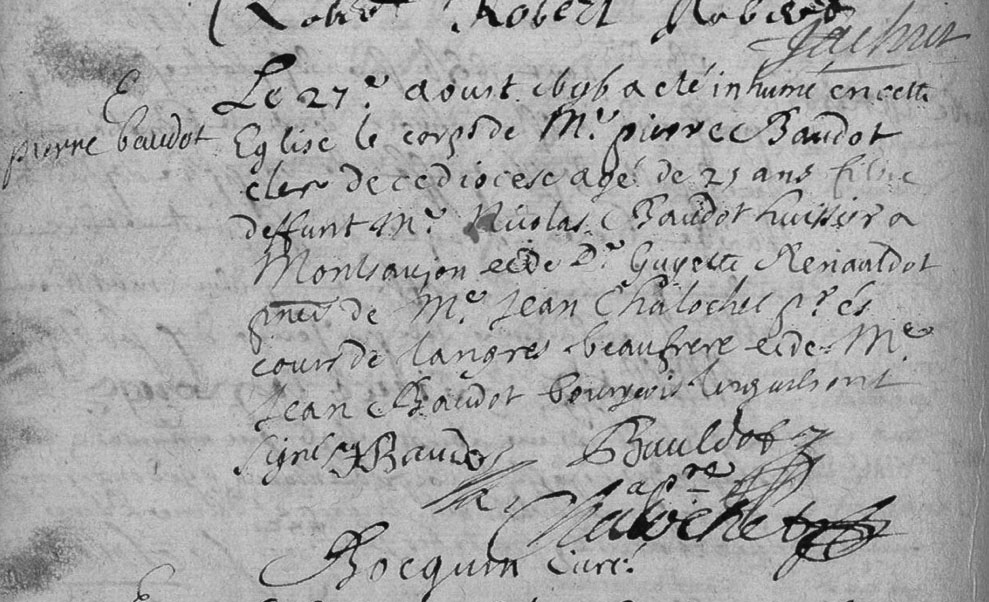 Robert Robert
E
pierre baudot
Le 27.e aoust 1696 a eté inhumé en cette
Eglise le corps de Mr. pierre Baudot
clerc de ce diocese agé de 25 ans fils de
deffunt Mr. Nicolas Baudot huissier a
Montsaujon et de De. Guyette Renauldot
pnce de Me. Jean Chalochet pr. és
cours de Langres beaufrere et de Me
Jean Baudot bourgeois lesquels ont
signés Baudot Bauldot
Chalochet
Bocquin Curé.